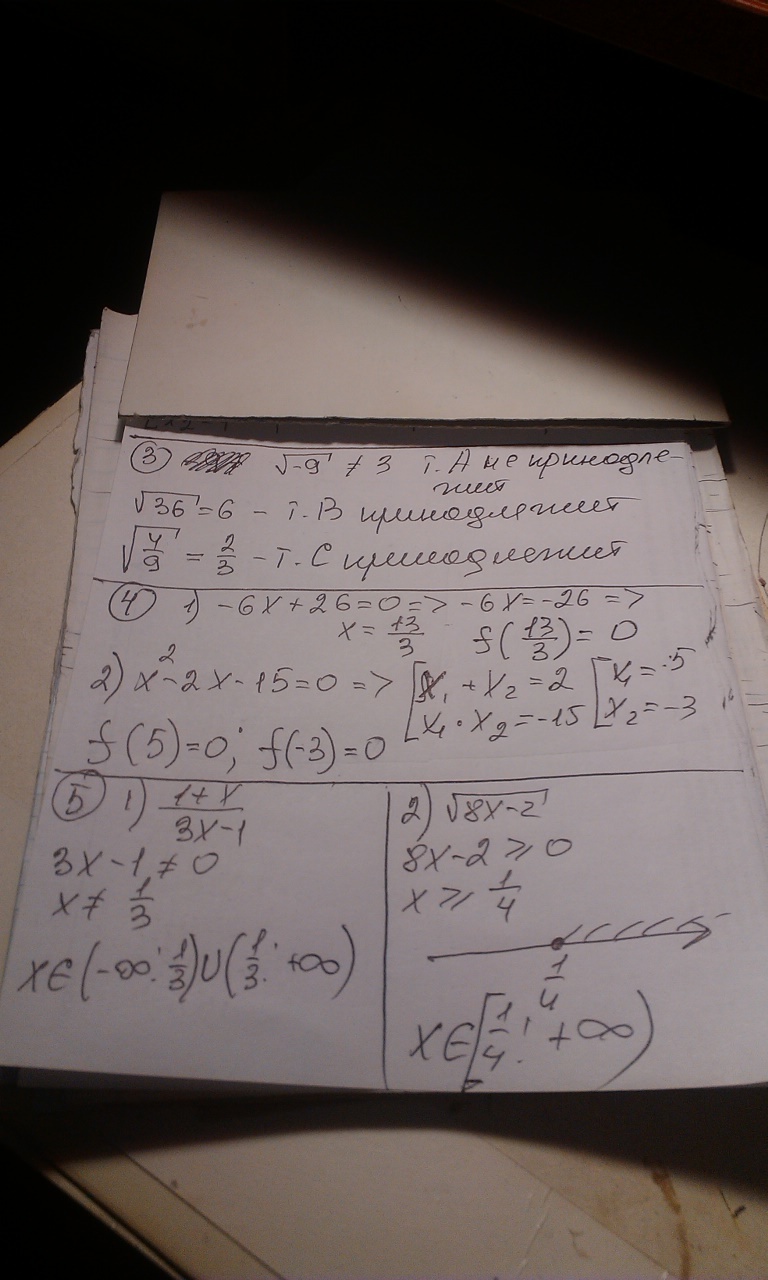 ③ √-9 ≠ 3 т. А не принодле-
жит
√36 = 6 - т. В принодлежит
√4/9 = 2/3 - т. С принодлежит
④ 1) -6x + 26 = 0 => -6x = -26 =>
x = 13/3 f(13/3) = 0
2) x² - 2x - 15 = 0 => [x₁ + x₂ = 2 [x₁ = 5
[x₁ · x₂ = -15 [x₂ = -3
f(5) = 0; f(-3) = 0
⑤ 1) (1+x)/(3x-1)
3x - 1 ≠ 0
x ≠ 1/3
x ∈ (-∞; 1/3) ∪ (1/3; +∞)
2) √8x-2
8x - 2 ⩾ 0
x ⩾ 1/4
1/4
x ∈ [1/4; +∞)